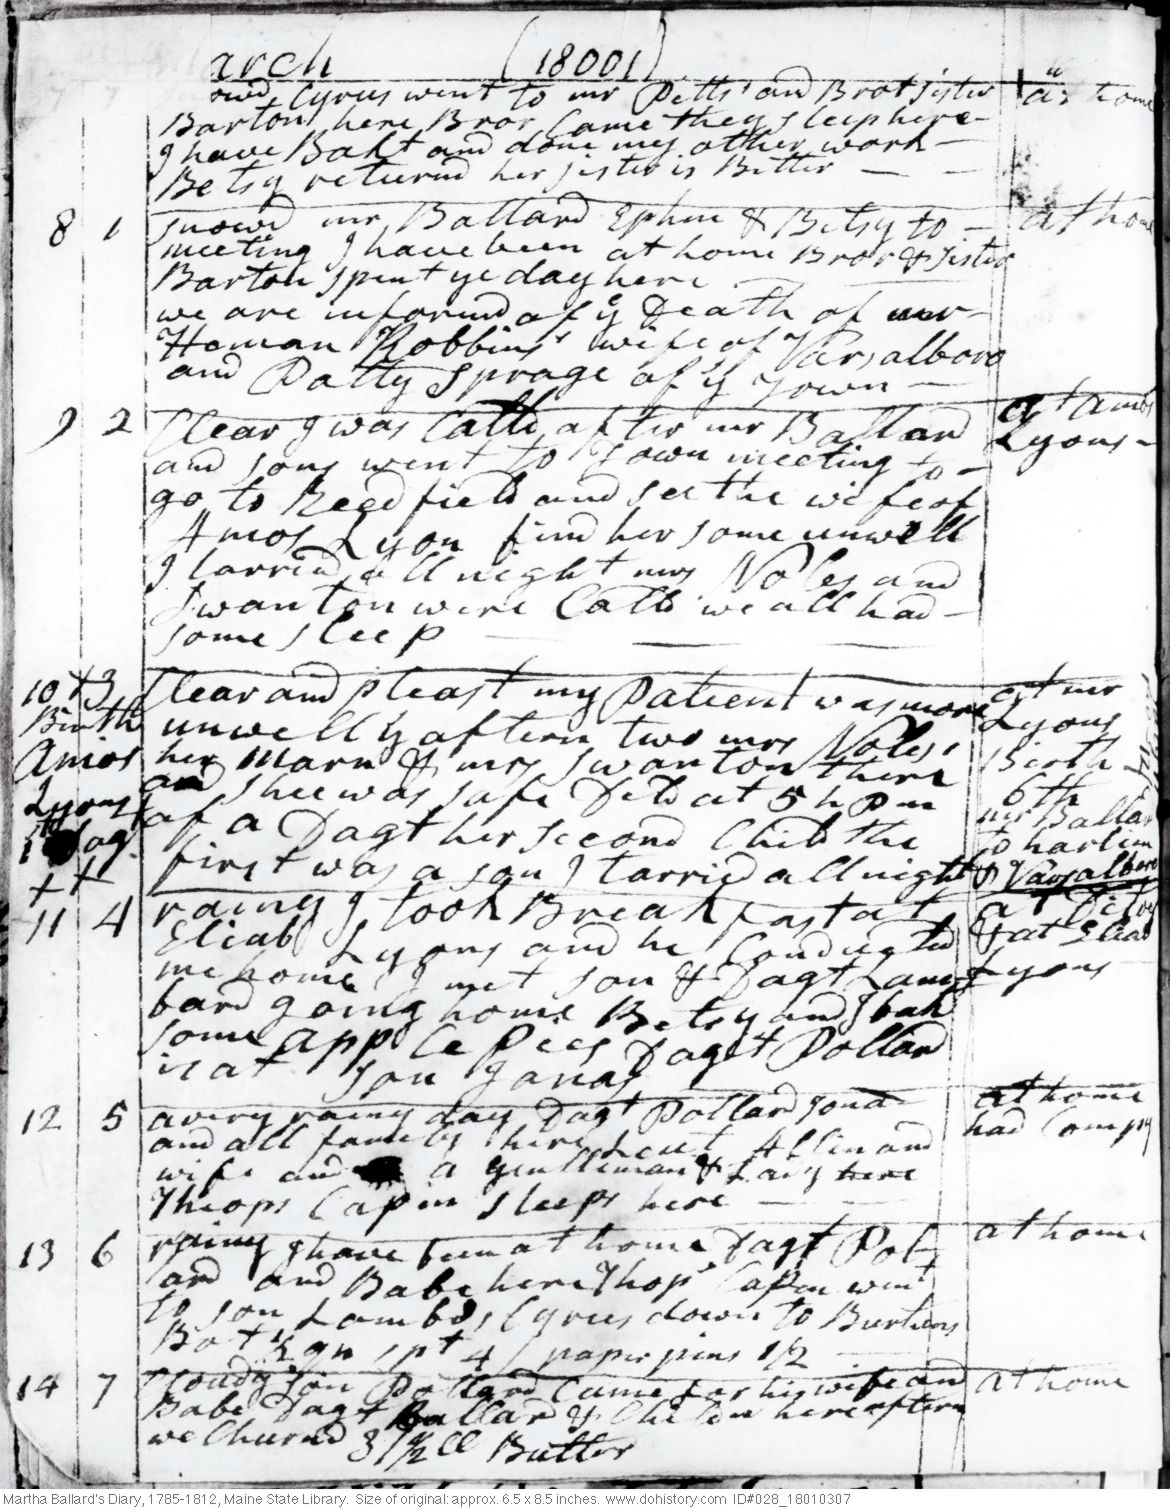 arch (18001)
7 7 snowd Cyrus went to mr Petts and Brot sister at home
Barton here Bror Came they sleep here
I have Bakt and done my other work
Betsy returnd her sister is Better
8 1 snowd mr Ballard Ephm & Betsy to at home
meeting I have been at home Bror & sister
Barton spent ye day here
we are informd of ye Death of
Heman Robbins' wife of Varsalboro
and Patty Sprage of ye Town
9 2 Clear I was Calld after mr Ballard at Amos
and sons went to Town meeting to Lyons
go to Reedfield and see the wife of
Amos Lyon find her some unwell
I tarried all night mrs Noles and
Swanton were Calld we all had
some sleep
10 + 3 Clear and pleast my Patient was more at mr
Birth unwell ye aftern two mrs Noles' Lyons
Amos her marm & mrs Swanton there Birth
Lyons and shee was safe Deld at 5 h pm 6th
of a Dagt her second Child the mr Ballard
1 Dagt first was a son I tarried all night to harlem
+ + & Varsalboro
11 4 rainy I took Breakfast at at Ditoes
Eliab Lyons and he Conducted & at Eliab
me home I met son & Dagt Lam Lyons
bard going home Betsy and I bak
some apple Pies Dagt Pollard
is at son Jonas
12 5 a very rainy day Dagt Pollard Jona at home
and all family here Leut Allin and had Compy
wife and a gentleman & Lady here
Theops Capin sleeps here
13 6 rainy I have been at home Dagt Pol at home
ard and Babe here Thops Capen went
to son Lambds Cyrus down to Burtuns
Bot 1/2 gn spt 4/ paper pins 1/2
14 7 Cloudy son Pollard Came for his wife an at home
Babe Dagt Ballard & Childn here aftern
we Churnd 3 1/2 ll Butter
Martha Ballard's Diary, 1785-1812, Maine State Library. Size of original: approx. 6.5 x 8.5 inches. www.dohistory.com ID#028_18010307